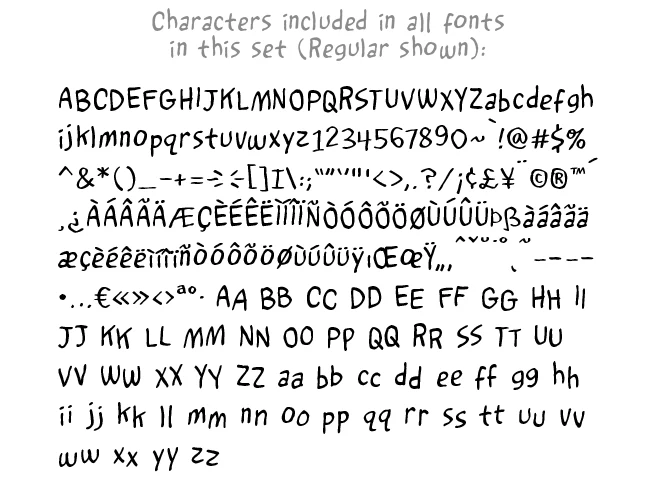 Characters included in all fonts
in this set (Regular shown):
ABCDEFGHIJKLMNOPQRSTUVWXYZabcdefgh
ijklmnopqrstuvwxyz1234567890~`!@#$%
^&*()_-+={}[]I\:;"”“’‘"'<>,.?/¡¢£¥¨©®™´
¸¿ÀÁÂÃÄÆÇÈÉÊËÌÍÎÏÑÒÓÔÕÖØÙÚÛÜÞßàáâãä
æçèéêëìíîïñòóôõöøùúûüÿıŒœŸ„‚ˆˇ˘˙˚˛˜----
•…€«»‹›ªº· AA BB CC DD EE FF GG HH II
JJ KK LL MM NN OO PP QQ RR SS TT UU
VV WW XX YY ZZ aa bb cc dd ee ff gg hh
ii jj kk ll mm nn oo pp qq rr ss tt uu vv
ww xx yy zz